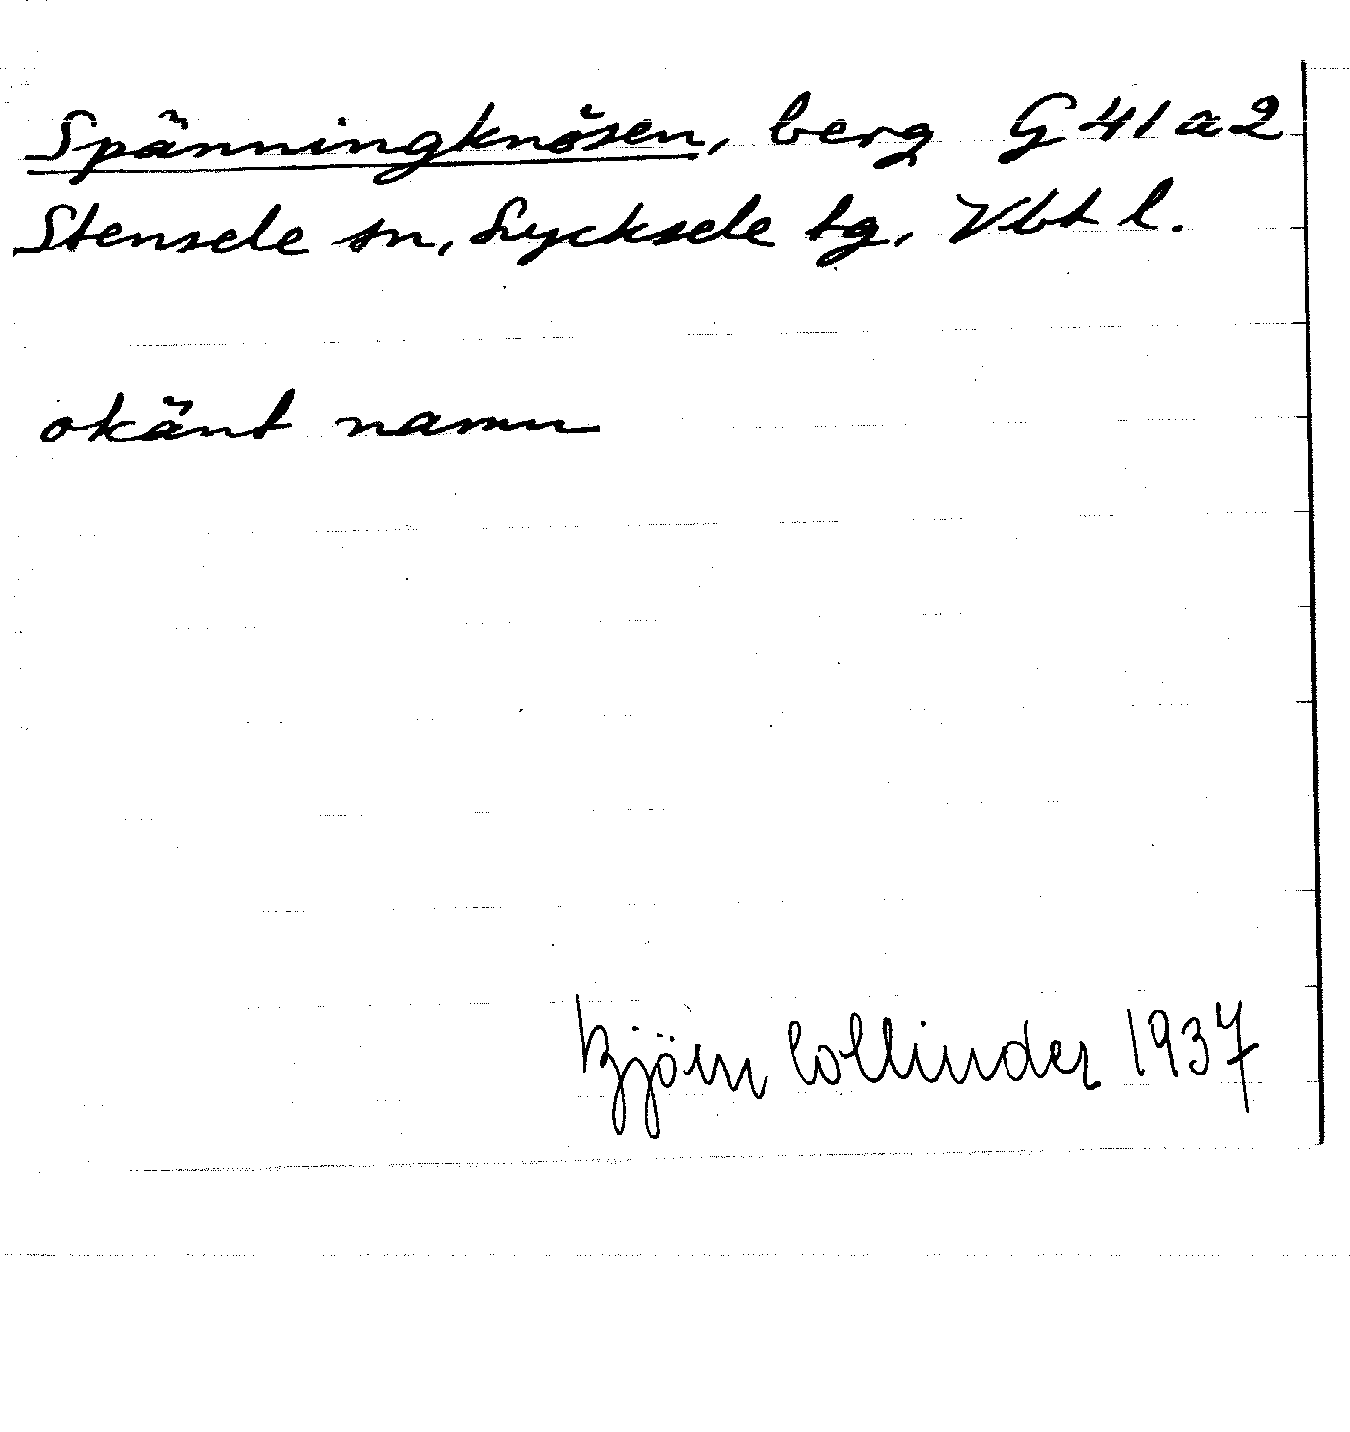 Spänningknösen, berg G 41 a 2
Stensele sn, Lycksele tg, Vbt l.
okänt namn
Björn Collinder 1937